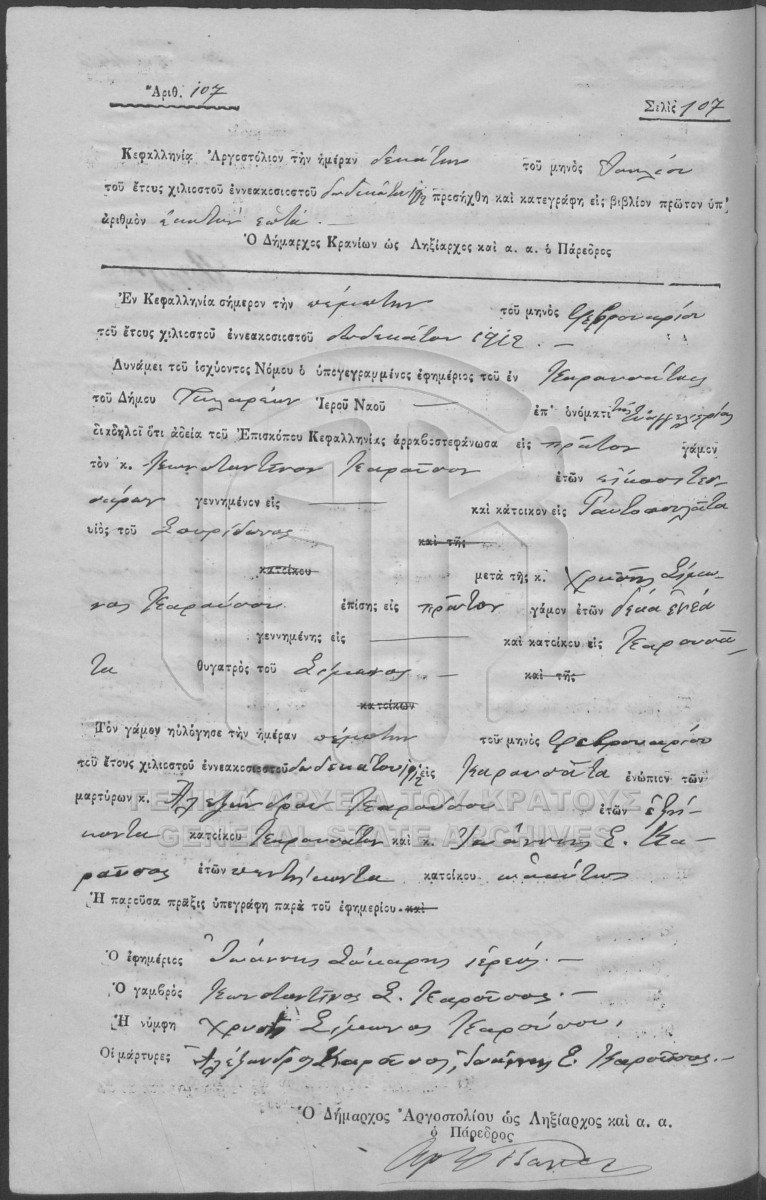 Ἀριθ. 107
Σελὶς 107
Κεφαλληνίᾳ Ἀργοστόλιον τὴν ἡμέραν δεκάτην τοῦ μηνὸς Ἰουλίου
τοῦ ἔτους χιλιοστοῦ ἐννεακοσιοστοῦ δωδεκάτου προσήχθη καὶ κατεγράφη εἰς βιβλίον πρῶτον ὑπ'
ἀριθμὸν ἑκατὸν ἑπτά. —
Ὁ Δήμαρχος Κρανίων ὡς Ληξίαρχος καὶ α. α. ὁ Πάρεδρος
Ἐν Κεφαλληνίᾳ σήμερον τὴν πέμπτην τοῦ μηνὸς Φεβρουαρίου
τοῦ ἔτους χιλιοστοῦ ἐννεακοσιοστοῦ δωδεκάτου 1912. —
Δυνάμει τοῦ ἰσχύοντος Νόμου ὁ ὑπογεγραμμένος ἐφημέριος τοῦ ἐν Καρουσάτοις
τοῦ Δήμου Ταλαιρέων Ἱεροῦ Ναοῦ — ἐπ' ὀνόματι τῆς Εὐαγγελιστρίας
διαδηλοῖ ὅτι ἀδείᾳ τοῦ Ἐπισκόπου Κεφαλληνίας ἀρραβοστεφάνωσα εἰς πρῶτον γάμον
τὸν κ. Κωνσταντῖνον Καροῦσον ἐτῶν εἰκοσιτεσ-
σάρων γεννημένον εἰς — καὶ κάτοικον εἰς
υἱὸς τοῦ Σπυρίδωνος καὶ τῆς
κατοίκου μετὰ τῆς κ. Χρυσῆς Σίμω-
νος Καρούσου ἐπίσης εἰς πρῶτον γάμον ἐτῶν δέκα ἐνέα
γεννημένης εἰς — καὶ κατοίκου εἰς Καρουσᾶ-
τα θυγατρὸς τοῦ Σίμωνος — καὶ τῆς
κατοίκων
Τὸν γάμον ηὐλόγησε τὴν ἡμέραν πέμπτην τοῦ μηνὸς Φεβρουαρίου
τοῦ ἔτους χιλιοστοῦ ἐννεακοσιοστοῦ δωδεκάτου εἰς Καρουσᾶτα ἐνώπιον τῶν
μαρτύρων κ. Ἀλεξάνδρου Καρούσου ἐτῶν ἑξή-
κοντα κατοίκου Καρουσάτων καὶ κ. Ἰωάννης Ε. Κα-
ροῦσος ἐτῶν πεντήκοντα κατοίκου ὡσαύτως
Ἡ παροῦσα πρᾶξις ὑπεγράφη παρὰ τοῦ ἐφημερίου καὶ
Ὁ ἐφημέριος Ἰωάννης ἱερεύς. —
Ὁ γαμβρὸς Κωνσταντῖνος Σ. Καροῦσος. —
Ἡ νύμφη Χρυσῆ Σίμωνος Καρούσου,
Οἱ μάρτυρες Ἀλέξανδρος Καροῦσος, Ἰωάννης Ε. Καροῦσος. —
Ὁ Δήμαρχος Ἀργοστολίου ὡς Ληξίαρχος καὶ α. α.
ὁ Πάρεδρος
ΓΕΝΙΚΑ ΑΡΧΕΙΑ ΤΟΥ ΚΡΑΤΟΥΣ
GENERAL STATE ARCHIVES